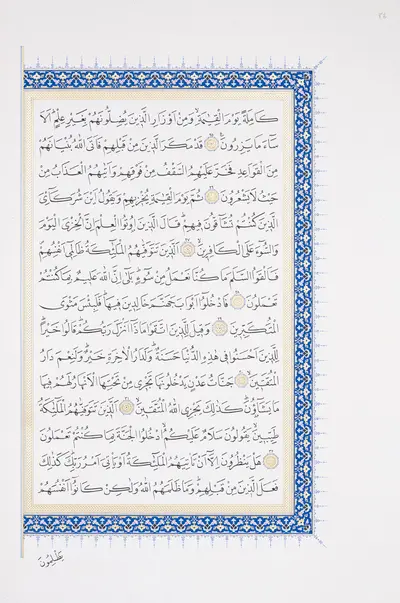 كَامِلَةً يَوْمَ الْقِيٰمَةِۙ وَمِنْ اَوْزَارِ الَّذ۪ينَ يُضِلُّونَهُمْ بِغَيْرِ عِلْمٍۜ اَلَا
سَٓاءَ مَا يَزِرُونَ۟ قَدْ مَكَرَ الَّذ۪ينَ مِنْ قَبْلِهِمْ فَاَتَى اللّٰهُ بُنْيَانَهُمْ
مِنَ الْقَوَاعِدِ فَخَرَّ عَلَيْهِمُ السَّقْفُ مِنْ فَوْقِهِمْ وَاَتٰيهُمُ الْعَذَابُ مِنْ
حَيْثُ لَا يَشْعُرُونَ ثُمَّ يَوْمَ الْقِيٰمَةِ يُخْز۪يهِمْ وَيَقُولُ اَيْنَ شُرَكَٓاءِيَ
الَّذ۪ينَ كُنْتُمْ تُشَٓاقُّونَ ف۪يهِمْۜ قَالَ الَّذ۪ينَ اُو۫تُوا الْعِلْمَ اِنَّ الْخِزْيَ الْيَوْمَ
وَالسُّٓوءَ عَلَى الْكَافِر۪ينَۙ اَلَّذ۪ينَ تَتَوَفّٰيهُمُ الْمَلٰٓئِكَةُ ظَالِم۪ٓي اَنْفُسِهِمْۖ
فَاَلْقَوُا السَّلَمَ مَا كُنَّا نَعْمَلُ مِنْ سُٓوءٍۜ بَلٰٓى اِنَّ اللّٰهَ عَل۪يمٌ بِمَا كُنْتُمْ
تَعْمَلُونَ فَادْخُلُٓوا اَبْوَابَ جَهَنَّمَ خَالِد۪ينَ ف۪يهَاۜ فَلَبِئْسَ مَثْوَى
الْمُتَكَبِّر۪ينَ وَق۪يلَ لِلَّذ۪ينَ اتَّقَوْا مَاذَٓا اَنْزَلَ رَبُّكُمْۜ قَالُوا خَيْرًاۜ
لِلَّذ۪ينَ اَحْسَنُوا ف۪ي هٰذِهِ الدُّنْيَا حَسَنَةٌۜ وَلَدَارُ الْاٰخِرَةِ خَيْرٌۜ وَلَنِعْمَ دَارُ
الْمُتَّق۪ينَۙ جَنَّاتُ عَدْنٍ يَدْخُلُونَهَا تَجْر۪ي مِنْ تَحْتِهَا الْاَنْهَارُ لَهُمْ ف۪يهَا
مَا يَشَٓاؤُ۫نَۜ كَذٰلِكَ يَجْزِي اللّٰهُ الْمُتَّق۪ينَۙ اَلَّذ۪ينَ تَتَوَفّٰيهُمُ الْمَلٰٓئِكَةُ
طَيِّب۪ينَۙ يَقُولُونَ سَلَامٌ عَلَيْكُمُۙ ادْخُلُوا الْجَنَّةَ بِمَا كُنْتُمْ تَعْمَلُونَ
هَلْ يَنْظُرُونَ اِلَّٓا اَنْ تَأْتِيَهُمُ الْمَلٰٓئِكَةُ اَوْ يَأْتِيَ اَمْرُ رَبِّكَۜ كَذٰلِكَ
فَعَلَ الَّذ۪ينَ مِنْ قَبْلِهِمْۜ وَمَا ظَلَمَهُمُ اللّٰهُ وَلٰكِنْ كَانُٓوا اَنْفُسَهُمْ
يَظْلِمُونَ